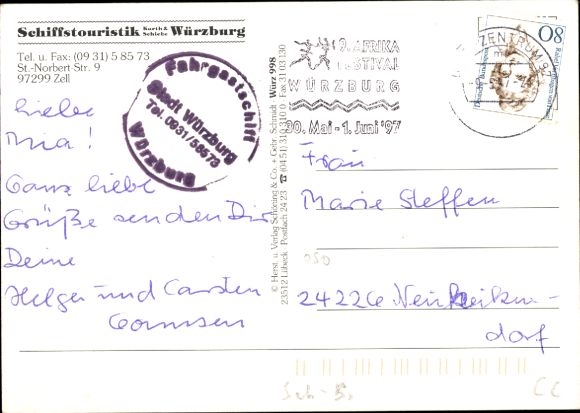 Schiffstouristik Kurth & Schiebe Würzburg
Tel. u. Fax: (09 31) 5 85 73
St.-Norbert Str. 9
97299 Zell
Fahrgastschiff
Stadt Würzburg
Tel. 0931/58573
Würzburg
9. AFRIKA
FESTIVAL
WÜRZBURG
30. Mai - 1. Juni '97
ZENTRUM
80
© Herst. u. Verlag Schöning & Co. + Gebr. Schmidt · Würz 998
23512 Lübeck Postfach 24 23 ☎ (04 51) 3 10 31 0 Fax 31 03 130
Liebe
Mia!
Ganz liebe
Grüße senden Dir
Deine
Helga und Carsten
Frau
Marie Steffen
24226 
dorf